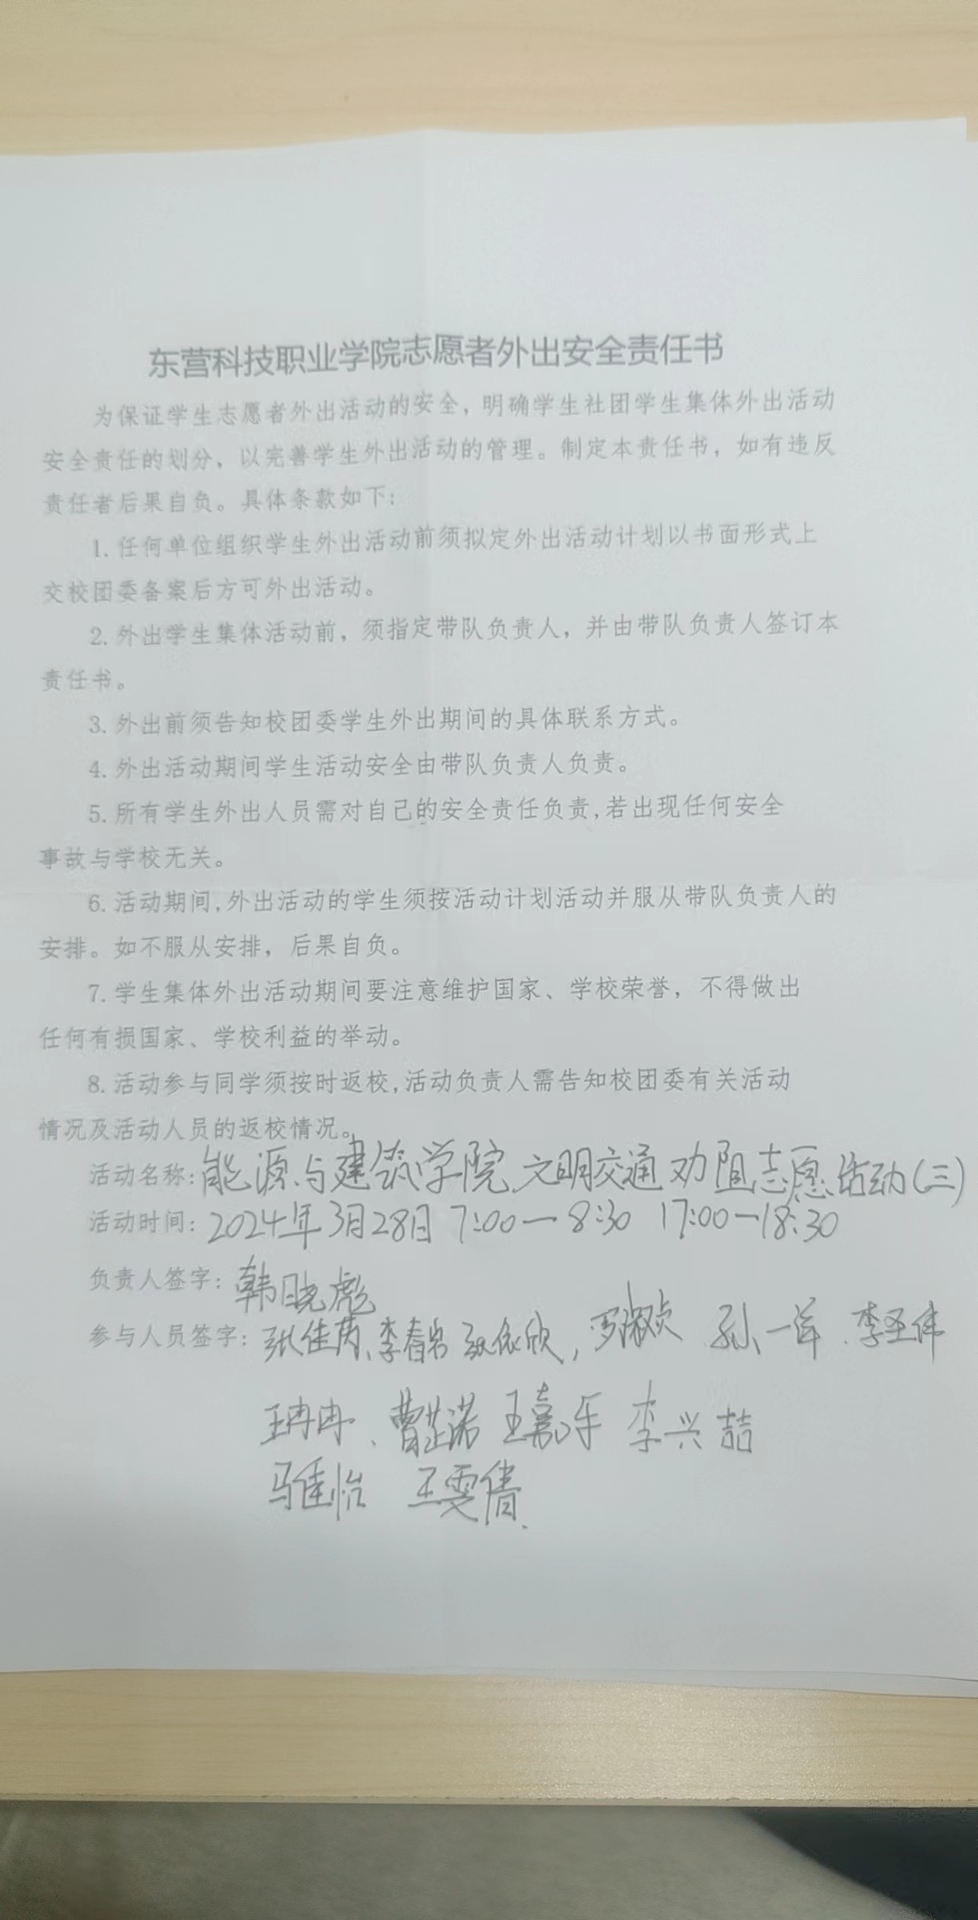 东营科技职业学院志愿者外出安全责任书
为保证学生志愿者外出活动的安全，明确学生社团学生集体外出活动
安全责任的划分，以完善学生外出活动的管理。制定本责任书，如有违反
责任者后果自负。具体条款如下：
1.任何单位组织学生外出活动前须拟定外出活动计划以书面形式上
交校团委备案后方可外出活动。
2.外出学生集体活动前，须指定带队负责人，并由带队负责人签订本
责任书。
3.外出前须告知校团委学生外出期间的具体联系方式。
4.外出活动期间学生活动安全由带队负责人负责。
5.所有学生外出人员需对自己的安全责任负责,若出现任何安全
事故与学校无关。
6.活动期间,外出活动的学生须按活动计划活动并服从带队负责人的
安排。如不服从安排，后果自负。
7.学生集体外出活动期间要注意维护国家、学校荣誉，不得做出
任何有损国家、学校利益的举动。
8.活动参与同学须按时返校,活动负责人需告知校团委有关活动
情况及活动人员的返校情况。
活动名称:能源与建筑学院文明交通劝阻志愿活动(三)
活动时间:2024年3月28日 7:00—8:30 17:00—18:30
负责人签字:韩晓彪
参与人员签字:张佳芮、张依欣, 罗淑贞 孙一 李亚伟
王冉冉、曹芷诺 王嘉乐 李兴喆
马佳怡 王雯倩